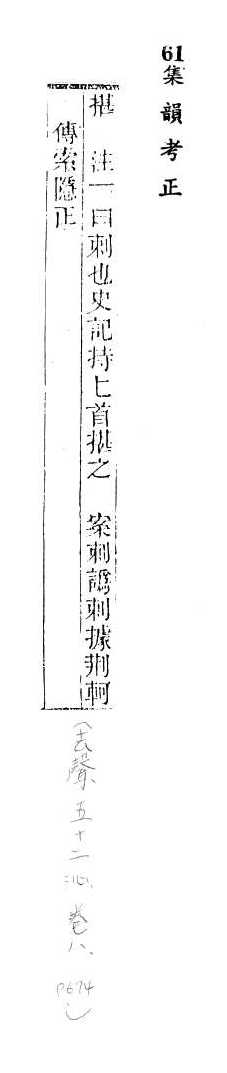 61集韻考正
揕　注一曰刺也史記持匕首揕之　案刺譌剌據荆軻
傳索隱正
(去聲、五十二沁、卷八、P674)